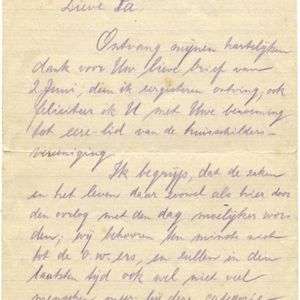 Lieve Pa.
Ontvang mijnen hartelijken
dank voor Uw lieve brief van
2 Juni, dien ik eergisteren ontving; ook
feliciteer ik U met Uwe benoeming
tot eere-lid van de huisschilders-
vereeniging.
Ik begrijp, dat de zaken
en het leven daar zoowel als hier door
den oorlog met den dag moeilijker wor-
den; wij behooren ten minste niet
tot de O.W.ers, en zullen in den
laatsten tijd ook wel niet veel
menschen meer tot deze categorie